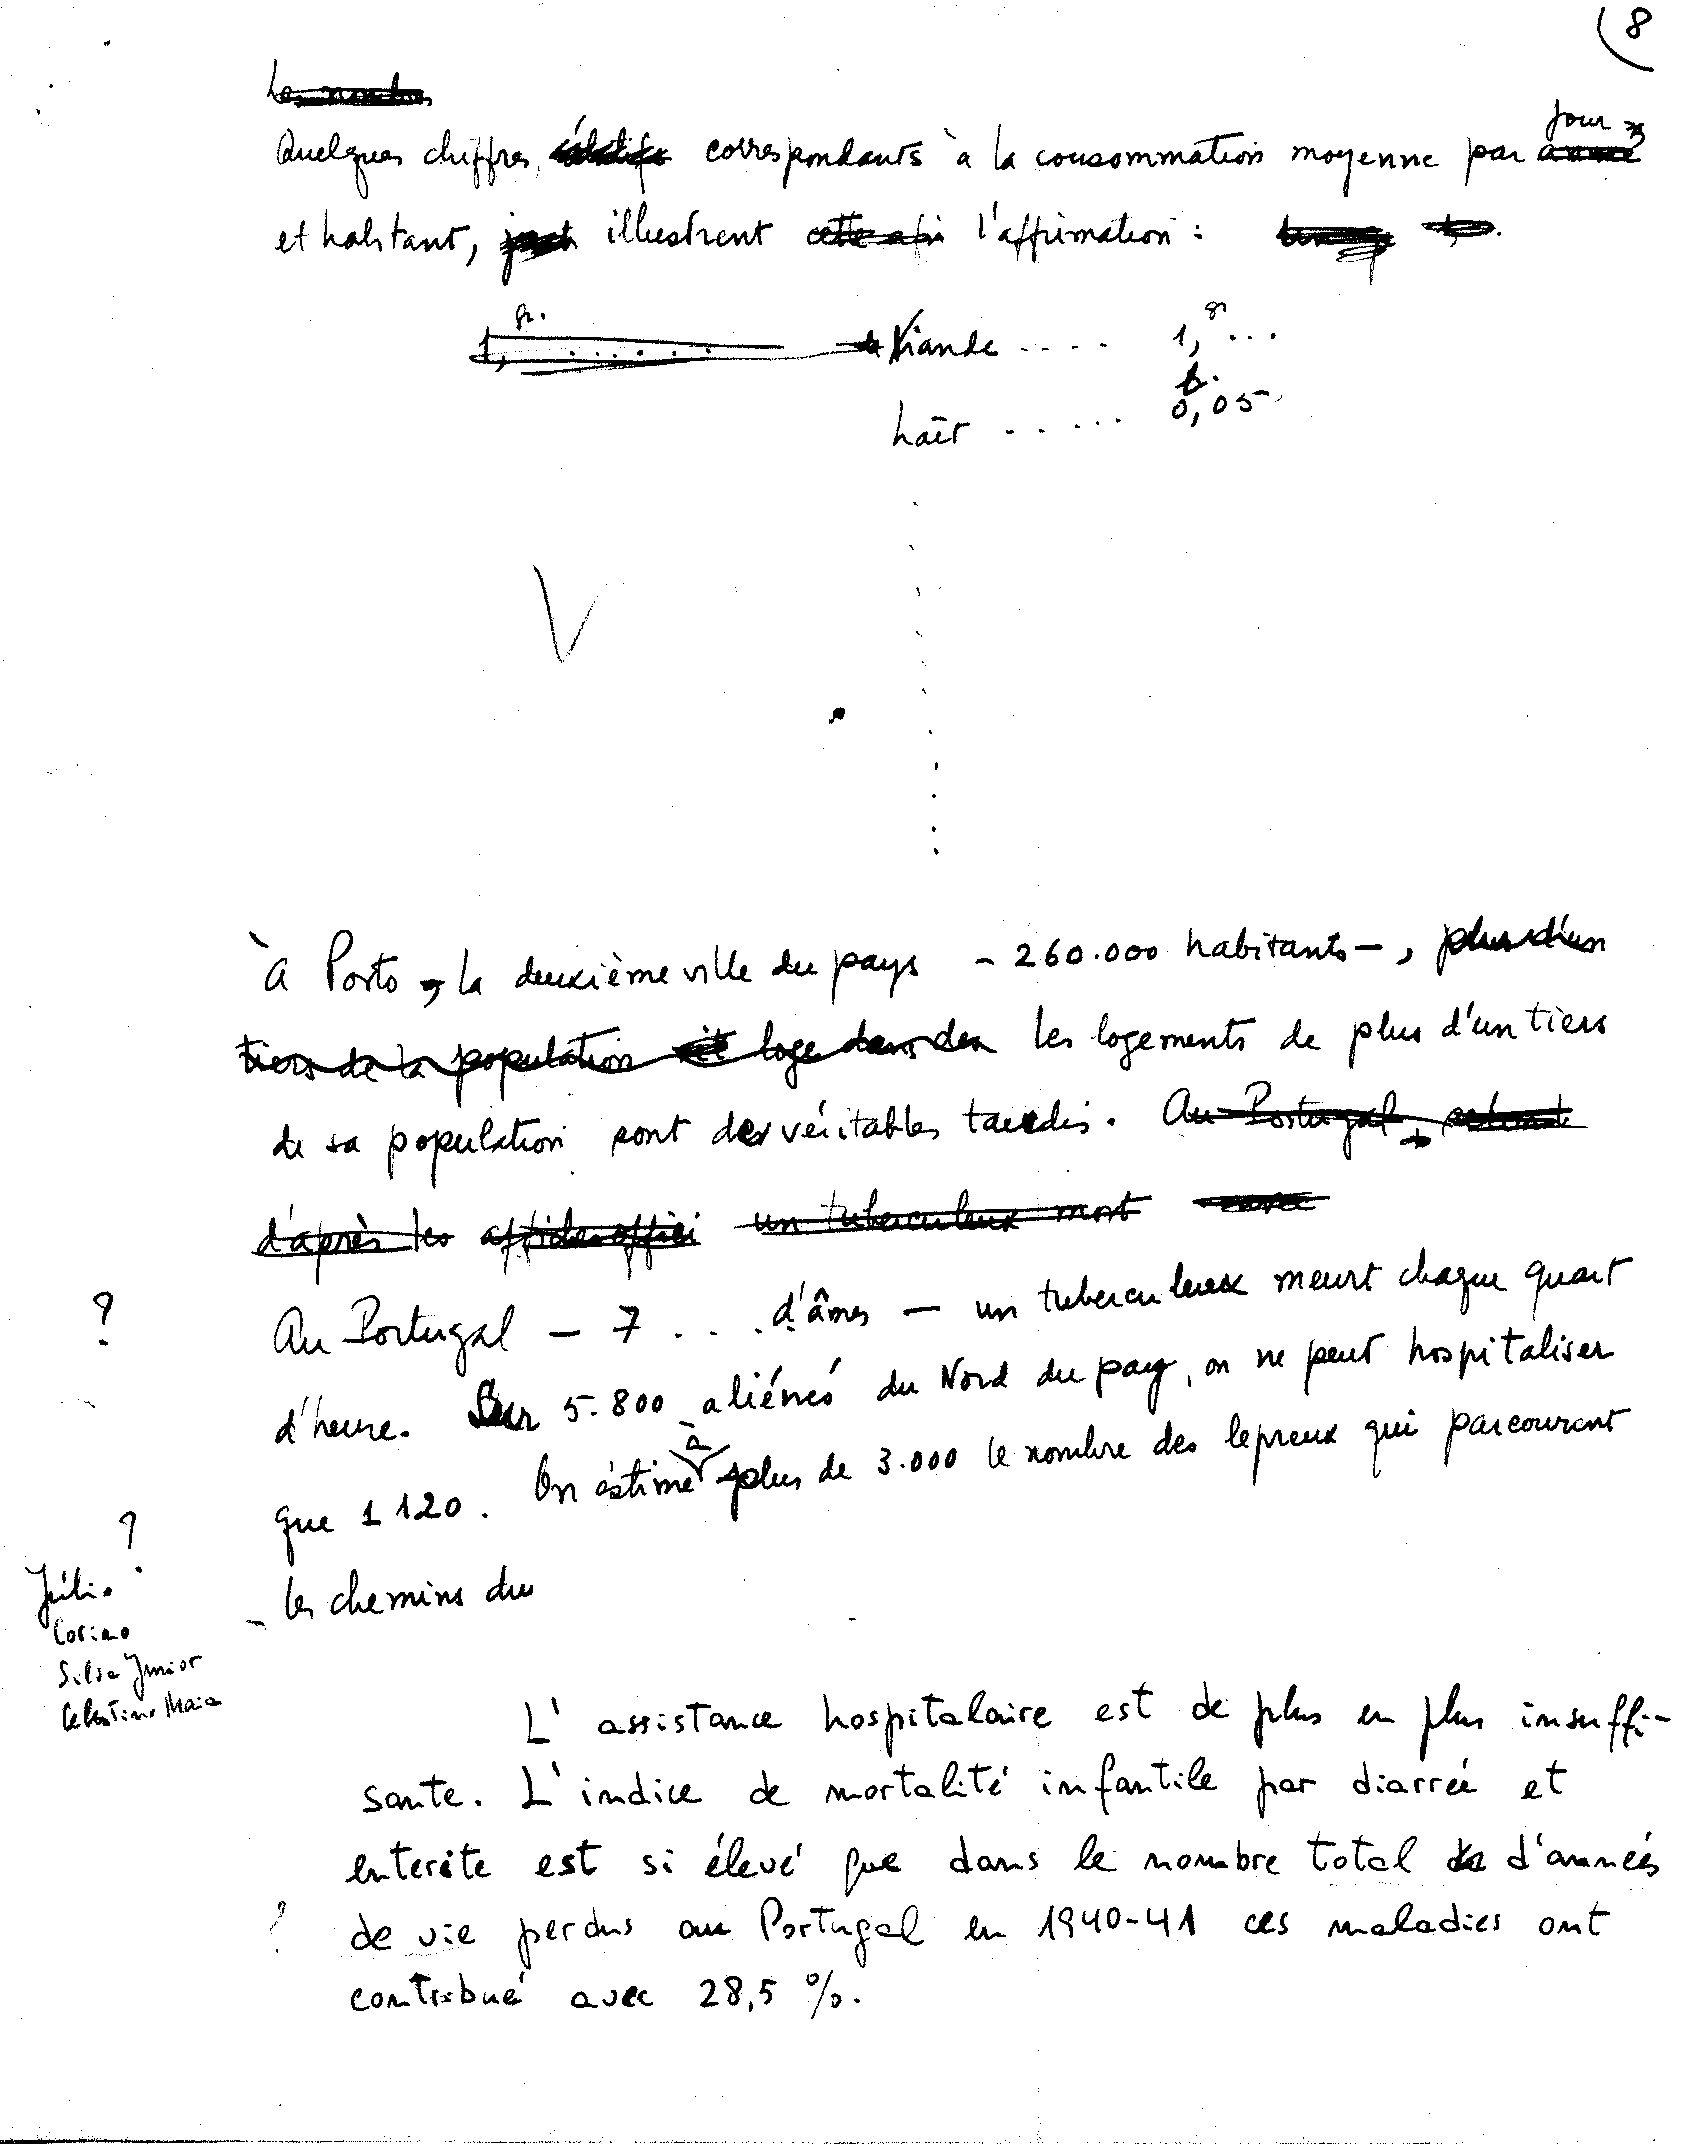 8
Les nombres
Quelques chiffres, relatifs correspondants à la consommation moyenne par année jour
et habitant, illustrent cette afi l'affirmation :
1, gr. . . . . . . de Viande . . . . 1, gr . . .
Lait . . . . . . 0,05 l.
V
à Porto, la deuxième ville du pays - 260.000 habitants -, plus d'un
tiers de la population est logé dans des les logements de plus d'un tiers
de sa population sont des véritables taudis. Au Portugal,
d'après les affiches offici un tuberculeux mort
? Au Portugal - 7 . . . . d'âmes - un tuberculeux meurt chaque quart
d'heure. Sur 5.800 aliénés du Nord du pay, on ne peut hospitaliser
que 1 120. On éstime à plus de 3.000 le nombre des lepreux qui parcourent
?
les chemins du
Júlio
Corino
Silva Junior
Celestino Maia
L'assistance hospitalaire est de plus en plus insuffi-
sante. L'indice de mortalité infantile par diarrée et
enterite est si élevé que dans le nombre total de d'années
? de vie perdus au Portugal en 1940-41 ces maladies ont
contribué avec 28,5 %.